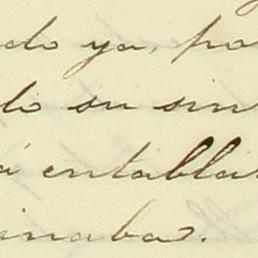 do ya, po
do su sin
á entablar
inaba.